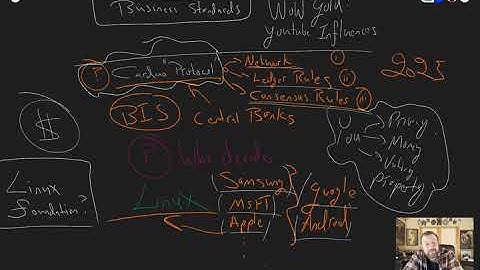 Business Standards
WoW Gold:
Youtube Influences
P Cardano "Protocol"
Network i
Ledger Rules ii
Consensus Rules iii
2025
BIS
Central Banks
$
You
Privacy
Money
Voting
Property
P Who decides
Linux
Foundation?
Linux
Samsung
MSFT
Apple
Google
Android